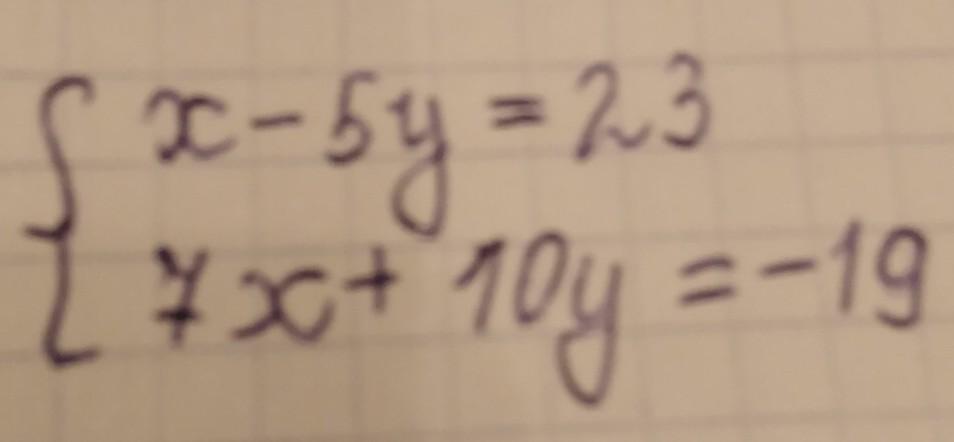 x - 5y = 23
7x + 10y = -19